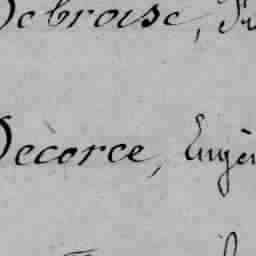 Debroise,
Décorce, Eugèn